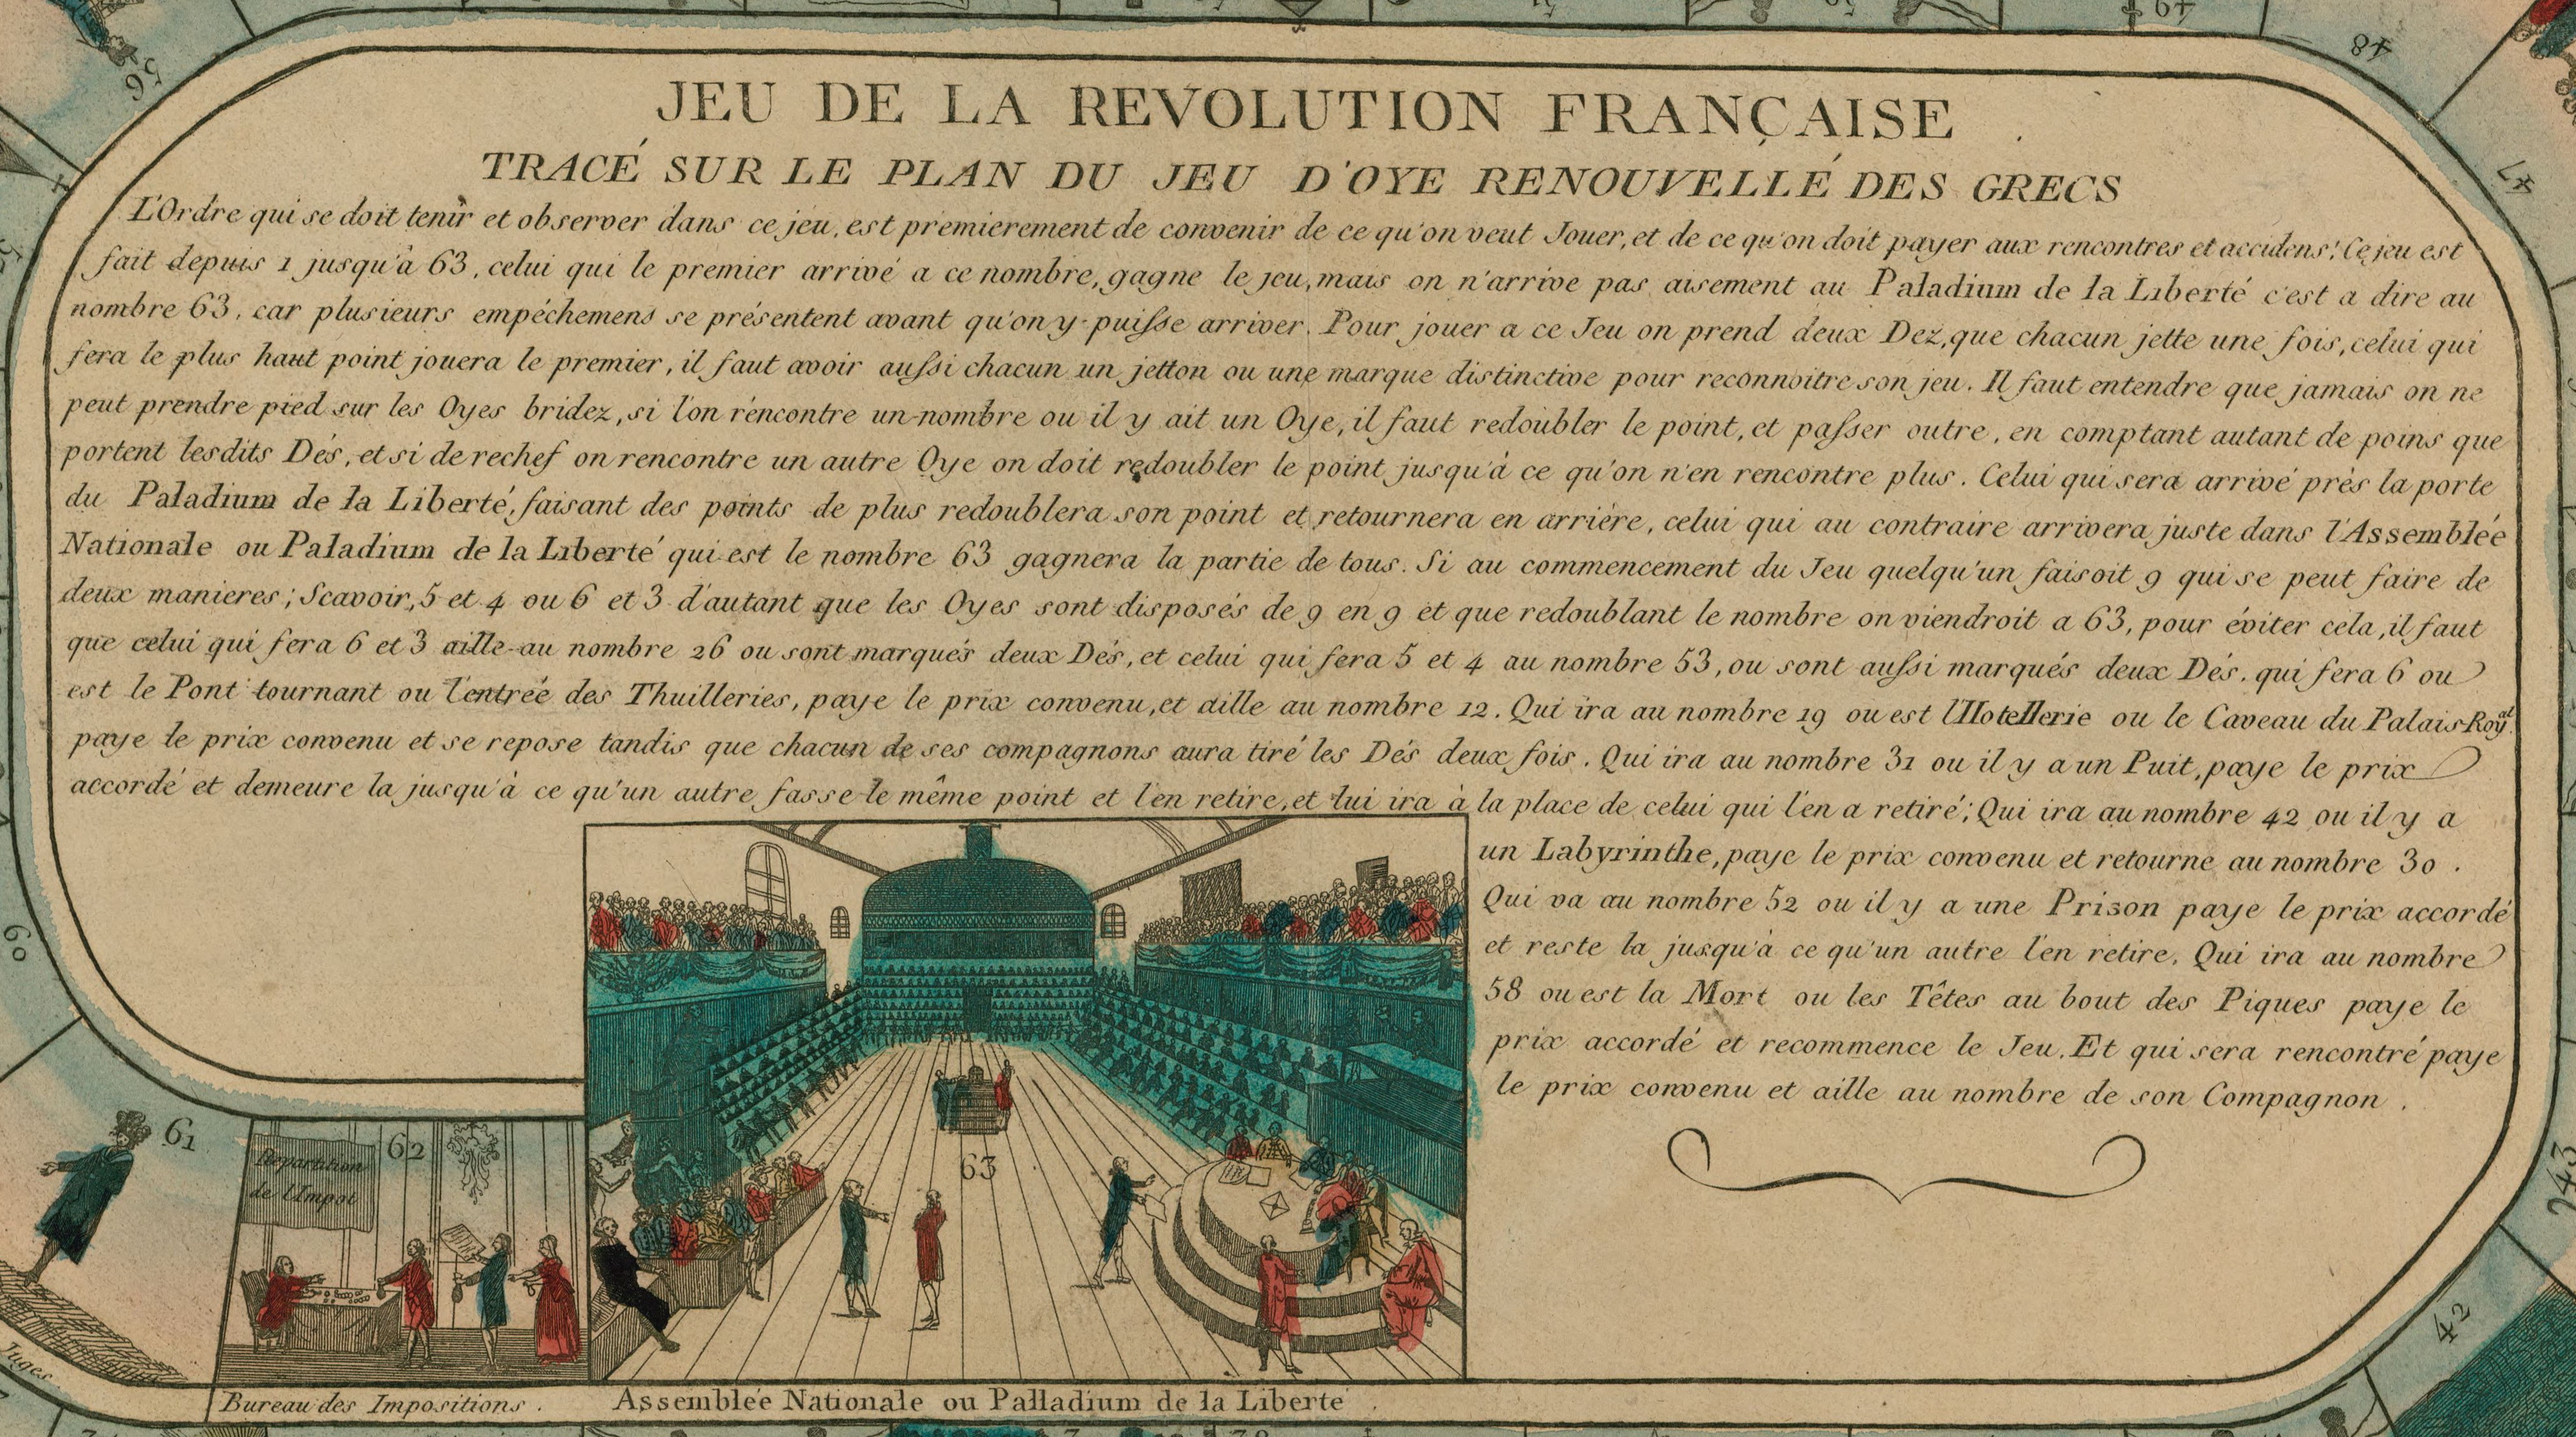 JEU DE LA REVOLUTION FRANÇAISE
TRACÉ SUR LE PLAN DU JEU D'OYE RENOUVELLÉ DES GRECS
L'Ordre qui se doit tenir et observer dans ce jeu, est premierement de convenir de ce qu'on veut Jouer, et de ce qu'on doit payer aux rencontres et accidens; Ce jeu est
fait depuis 1 jusqu'à 63, celui qui le premier arrivé a ce nombre, gagne le jeu, mais on n'arrive pas aisement au Paladium de la Liberté c'est a dire au
nombre 63, car plusieurs empéchemens se présentent avant qu'on y puisse arriver. Pour jouer a ce Jeu on prend deux Dez, que chacun jette une fois, celui qui
fera le plus haut point jouera le premier, il faut avoir aussi chacun un jetton ou une marque distinctive pour reconnoitre son jeu. Il faut entendre que jamais on ne
peut prendre pied sur les Oyes bridez, si l'on réncontre un nombre ou il y ait un Oye, il faut redoubler le point, et passer outre, en comptant autant de poins que
portent lesdits Dés, et si derechef on rencontre un autre Oye on doit redoubler le point jusqu'à ce qu'on n'en rencontre plus. Celui qui sera arrivé près la porte
du Paladium de la Liberté, faisant des points de plus redoublera son point et retournera en arriére, celui qui au contraire arrivera juste dans l'Assemblée
Nationale ou Paladium de la Liberté qui est le nombre 63 gagnera la partie de tous. Si au commencement du Jeu quelqu'un faisoit 9 qui se peut faire de
deux manieres; Scavoir, 5 et 4 ou 6 et 3 d'autant que les Oyes sont disposés de 9 en 9 et que redoublant le nombre on viendroit a 63, pour éviter cela, il faut
que celui qui fera 6 et 3 aille au nombre 26 ou sont marqués deux Dés, et celui qui fera 5 et 4 au nombre 53, ou sont aussi marqués deux Dés. qui fera 6 ou
est le Pont tournant ou l'entrée des Thuilleries, paye le prix convenu, et aille au nombre 12. Qui ira au nombre 19 ou est l'Hotellerie ou le Caveau du Palais-Royal
paye le prix convenu et se repose tandis que chacun de ses compagnons aura tiré les Dés deux fois. Qui ira au nombre 31 ou il y a un Puit, paye le prix
accordé et demeure la jusqu'à ce qu'un autre fasse le même point et l'en retire, et lui ira à la place de celui qui l'en a retiré; Qui ira au nombre 42 ou il y a
un Labyrinthe, paye le prix convenu et retourne au nombre 30.
Qui va au nombre 52 ou il y a une Prison paye le prix accordé
et reste la jusqu'à ce qu'un autre l'en retire. Qui ira au nombre
58 ou est la Mort ou les Têtes au bout des Piques paye le
prix accordé et recommence le Jeu. Et qui sera rencontré paye
le prix convenu et aille au nombre de son Compagnon.
56
48
47
60
61
62
Repartition
de l'Impot
63
243
42
Juges
Bureau des Impositions.
Assemblée Nationale ou Palladium de la Liberté.